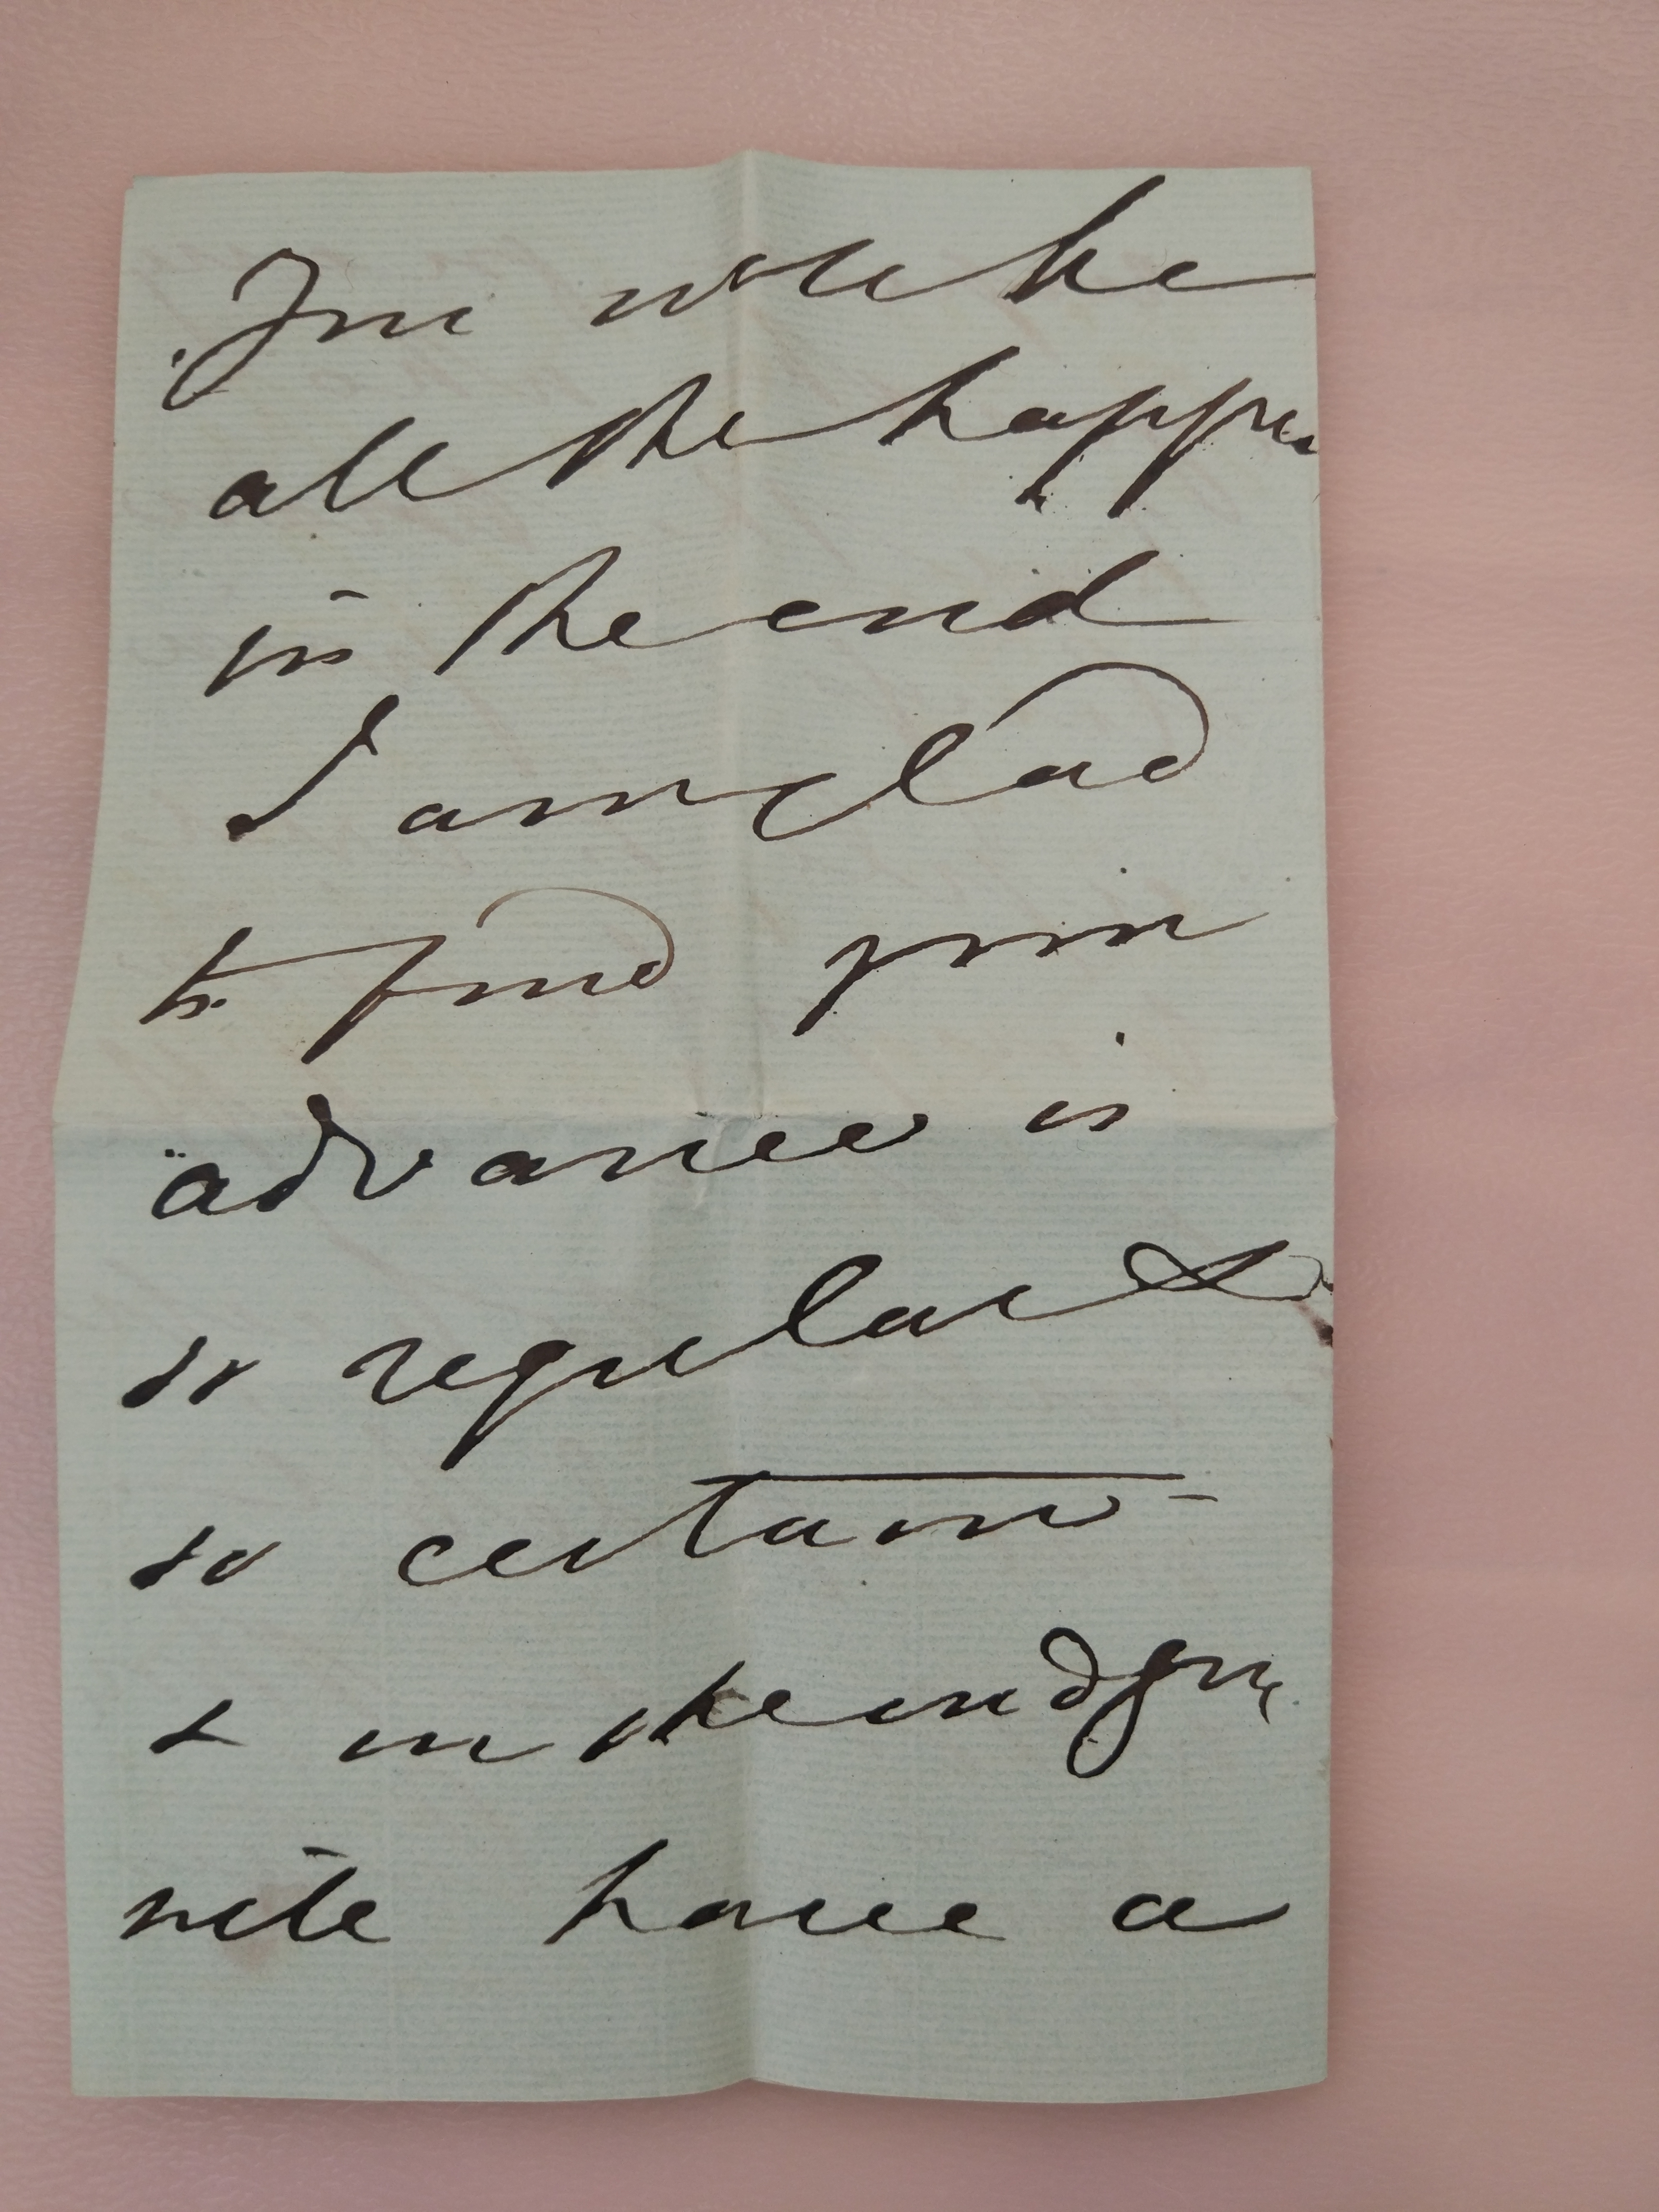 You will be
all the happier
in the end
I am glad
to find your
advance is
so regular &
so certain -
& in the end you
will have a